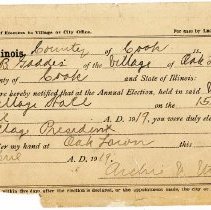 of Election to Village or City Office. For sale by
llinois, County of Cook ss.
B Gaddis of the Village of Oak
of Cook and State of Illinois:
hereby notified that at the Annual Election, held in said
Village Hall on the 15
A. D. 1919, you were duly elec
llage President
er my hand at Oak Lawn this
A. D. 1919.
Archie
within five days after the election is declared, or the appointment made, the city or